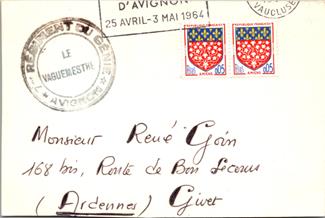 D'AVIGNON
25 AVRIL-3 MAI 1964
VAUCLUSE
7e RÉGIMENT DU GÉNIE
LE
VAGUEMESTRE
AVIGNON
0,05
AMIENS
0,05
AMIENS
Monsieur René Goin
168 bis, Route de Bon Secours
(Ardennes) Givet